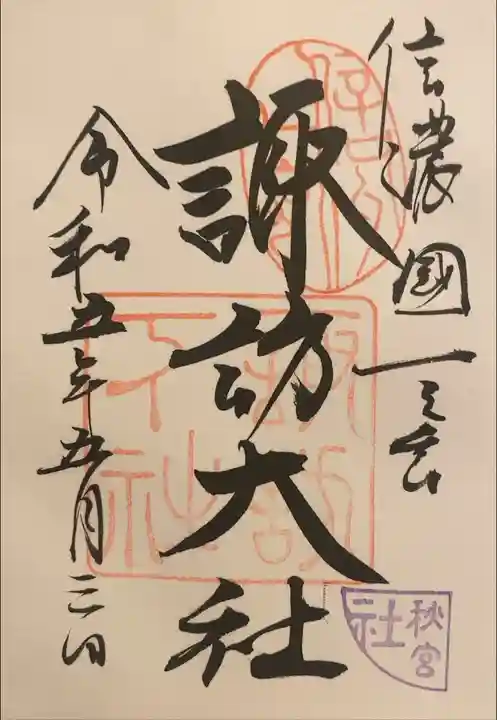 信濃國一之宮
諏訪大社
令和五年五月三日
諏訪
下社
秋宮
社